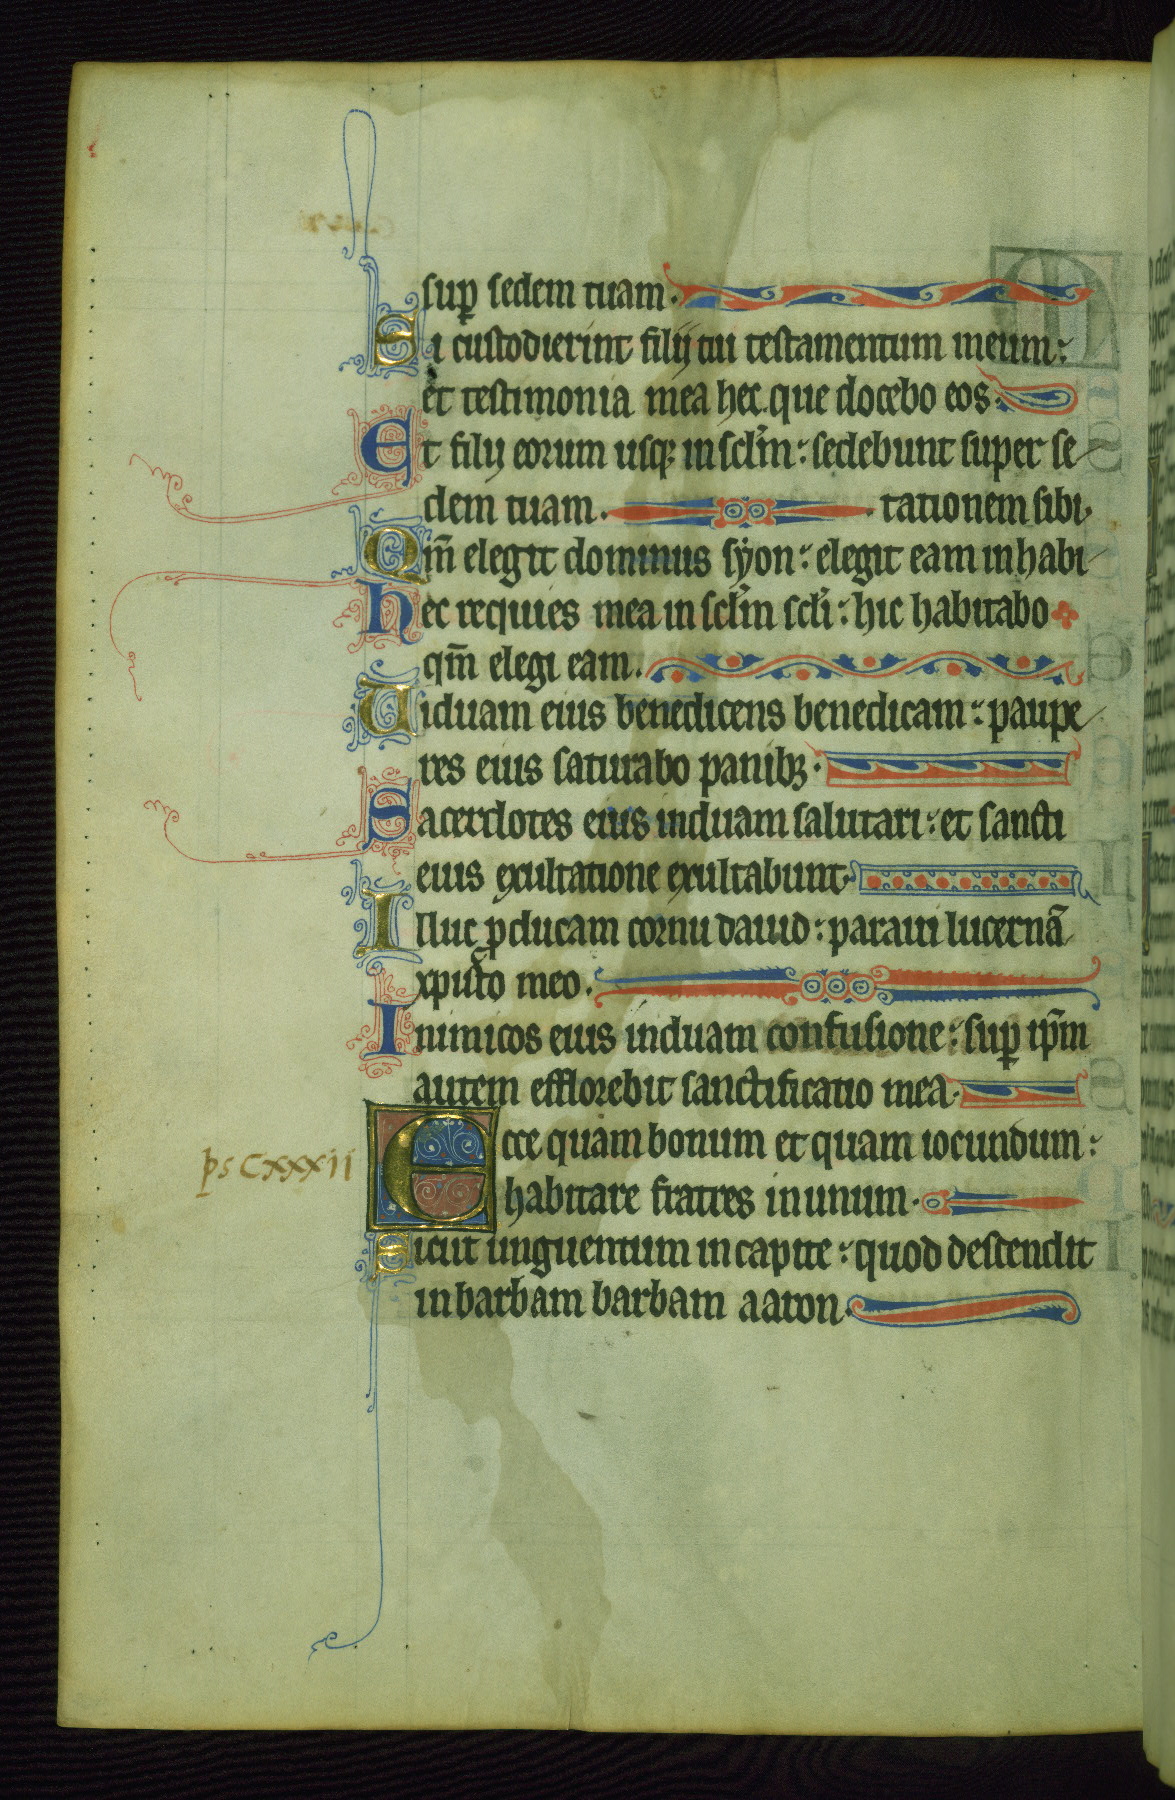 sup̱ sedem tuam.
Si custodierint filij tui testamentum meum:
et testimonia mea hec. que docebo eos.
Et filij eorum usq; in sclm̄: sedebunt super se
dem tuam. tationem sibi.
Qm̄ elegit dominus sẏon: elegit eam inhabi
Hec requies mea in sclm̄ scli: hic habitabo
qm̄ elegi eam.
Uiduam eius benedicens benedicam: paupe
res eius saturabo panibꝫ.
Sacerdotes eius induam salutari: et sancti
eius exultatione exultabunt.
Illuc ꝓducam cornu dauid: paraui lucernā
xpisto meo.
Inimicos eius induam confusione: sup̱ ip̄m
autem efflorebit sanctificatio mea.
ps CXXXII
Ecce quam bonum et quam iocundum:
habitare fratres in unum.
Sicut unguentum in capite: quod descendit
in barbam barbam aaron.